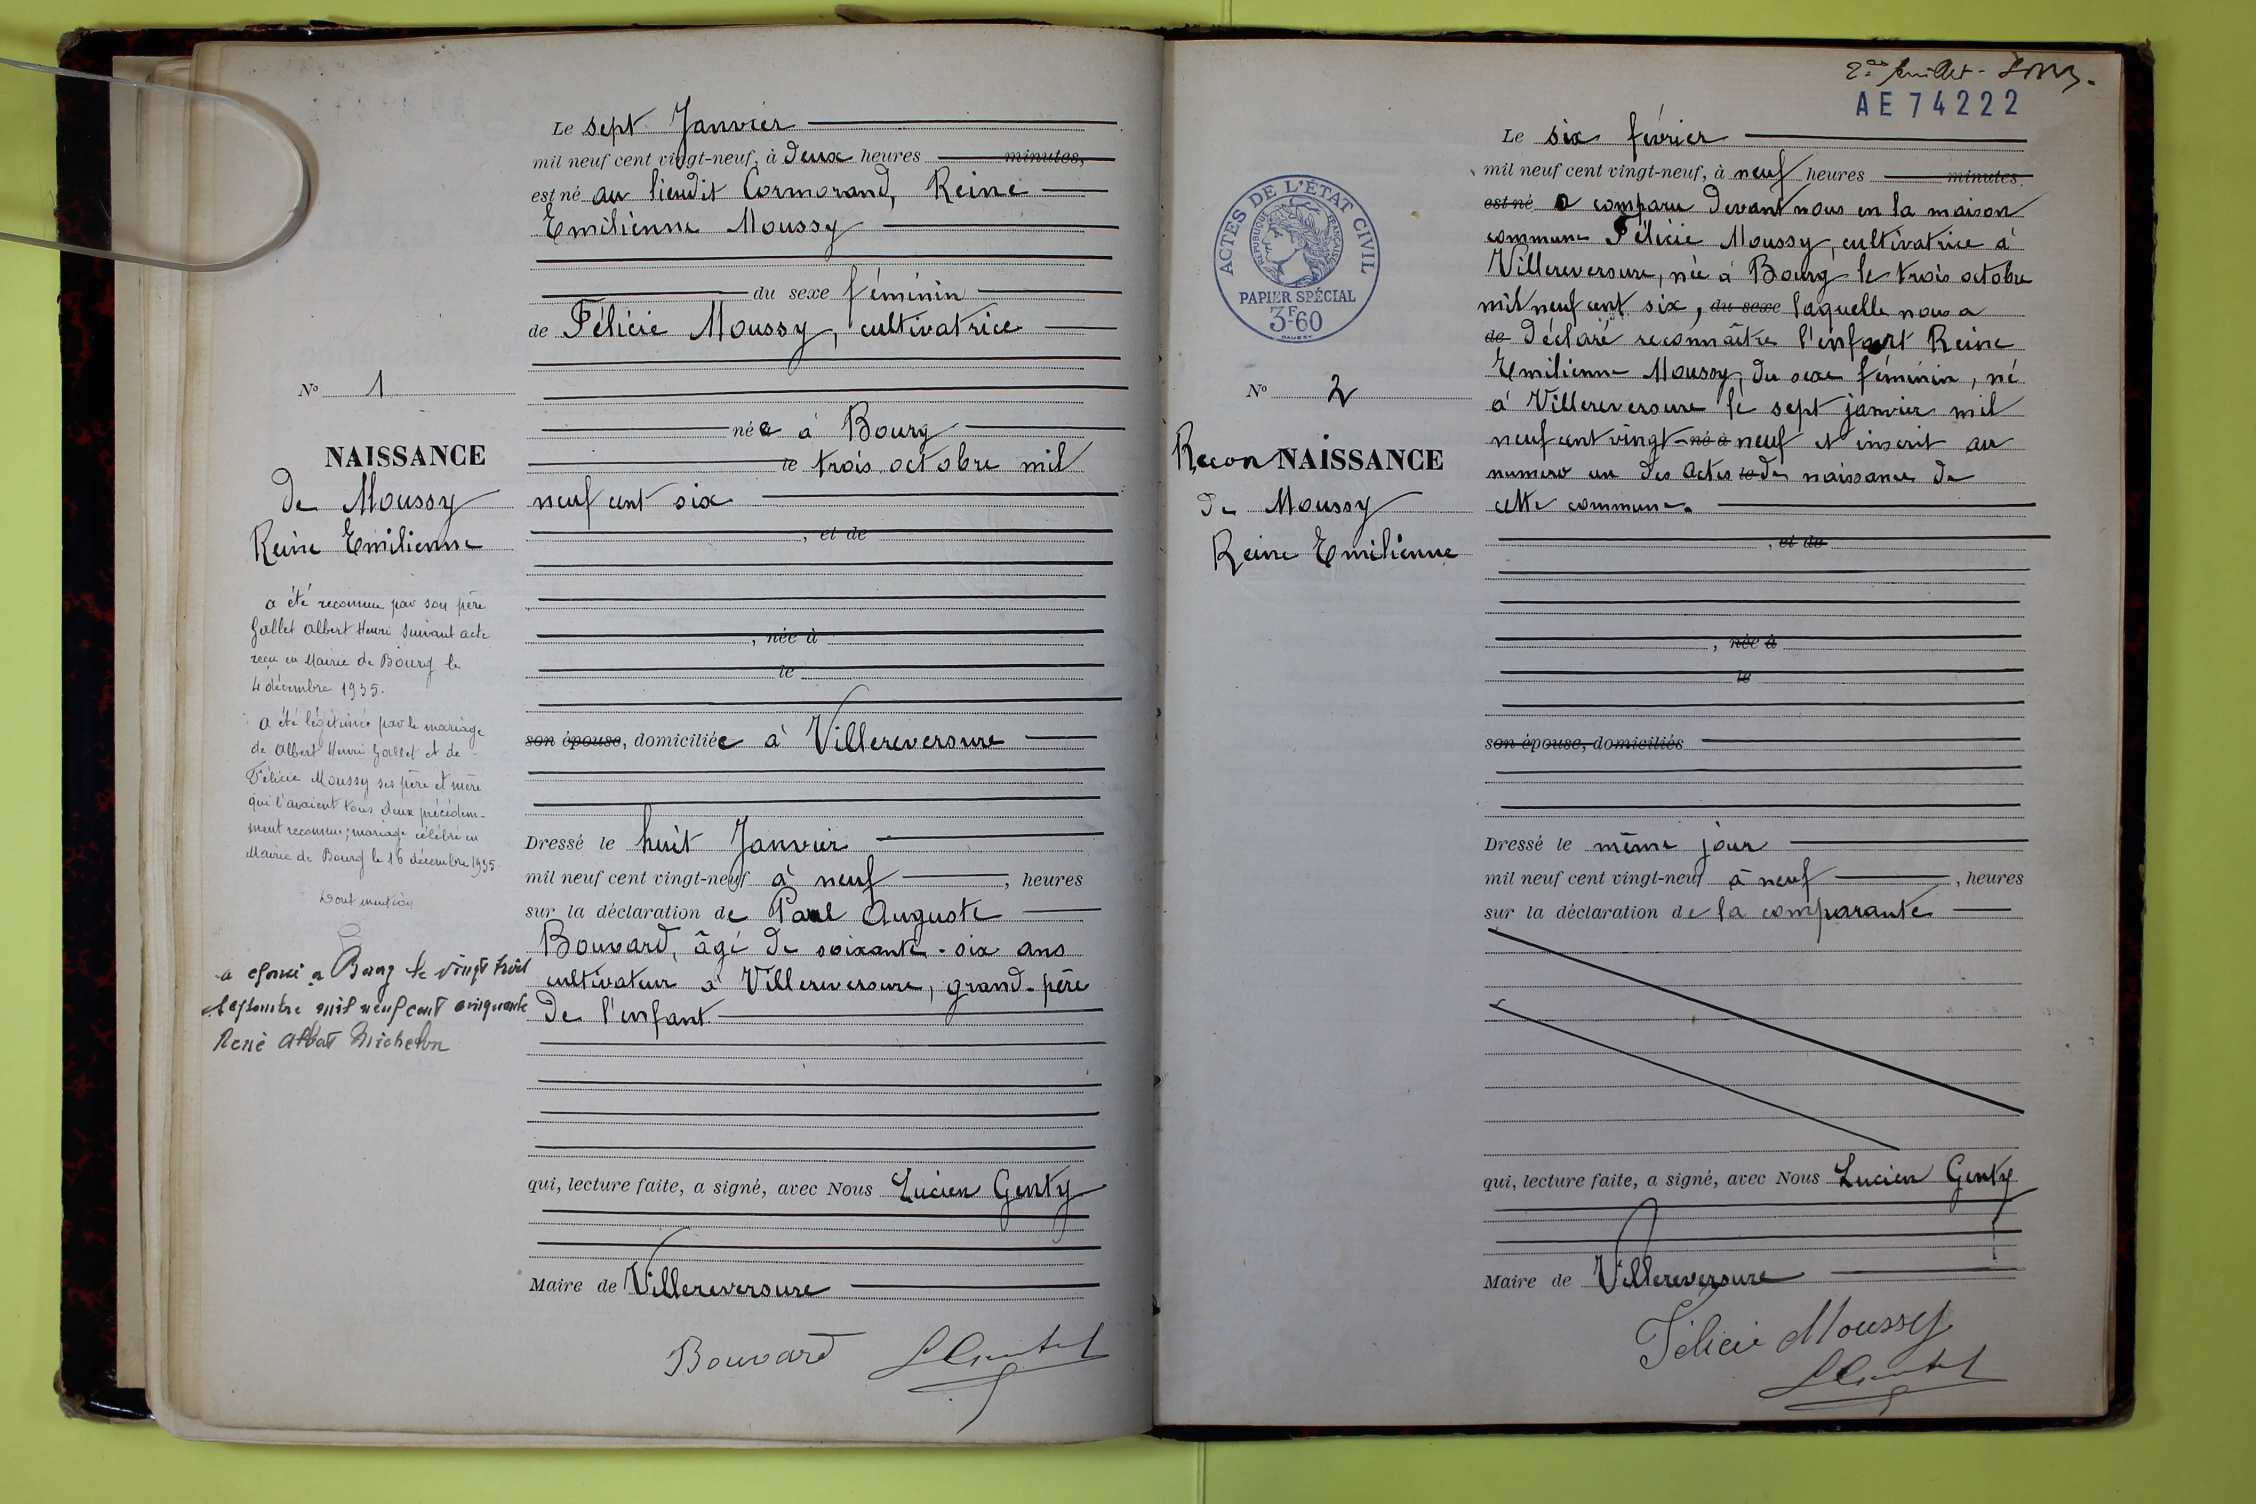 Le sept Janvier
mil neuf cent vingt-neuf, à deux heures minutes,
est né au lieudit Cormorand, Reine
Emilienne Moussy
du sexe féminin
de Félicie Moussy, cultivatrice
née à Bourg
le trois octobre mil
neuf cent six
, et de
, née à
le
son épouse, domiciliée à Villereversure
Dressé le huit Janvier
mil neuf cent vingt-neuf à neuf , heures
sur la déclaration de Paul Auguste
Bouvard, âgé de soixante-six ans
cultivateur à Villereversure, grand-père
de l'enfant
qui, lecture faite, a signé, avec Nous Lucien Genty
Maire de Villereversure
Bouvard
No 1
NAISSANCE
de Moussy
Reine Emilienne
a été reconnue par son père
Gallet Albert Henri suivant acte
reçu en Mairie de Bourg le
4 décembre 1935.
a été légitimée par le mariage
de Albert Henri Gallet et de
Félicie Moussy ses père et mère
qui l'avaient tous deux précédem-
ment reconnue; mariage célébré en
Mairie de Bourg le 16 décembre 1935.
Dont mention
a épousé à Bourg le vingt trois
septembre mil neuf cent cinquante
René Albert Michelon
2me feuillet
AE 74222
Le six février
mil neuf cent vingt-neuf, à neuf heures minutes
est né a comparu devant nous en la maison
commune Félicie Moussy, cultivatrice à
Villereversure, née à Bourg le trois octobre
mil neuf cent six, du sexe laquelle nous a
de déclaré reconnaître l'enfant Reine
Emilienne Moussy, du sexe féminin, né
à Villereversure le sept janvier mil
neuf cent vingt-né à neuf et inscrit au
numéro un des actes le de naissance de
cette commune.
, et de
, née à
le
son épouse, domiciliés
Dressé le même jour
mil neuf cent vingt-neuf à neuf , heures
sur la déclaration de la comparante
qui, lecture faite, a signé, avec Nous Lucien Genty
Maire de Villereversure
Félicie Moussy
ACTES DE L'ÉTAT CIVIL
RÉPUBLIQUE FRANÇAISE
PAPIER SPÉCIAL
3F60
No 2
Recon NAISSANCE
de Moussy
Reine Emilienne